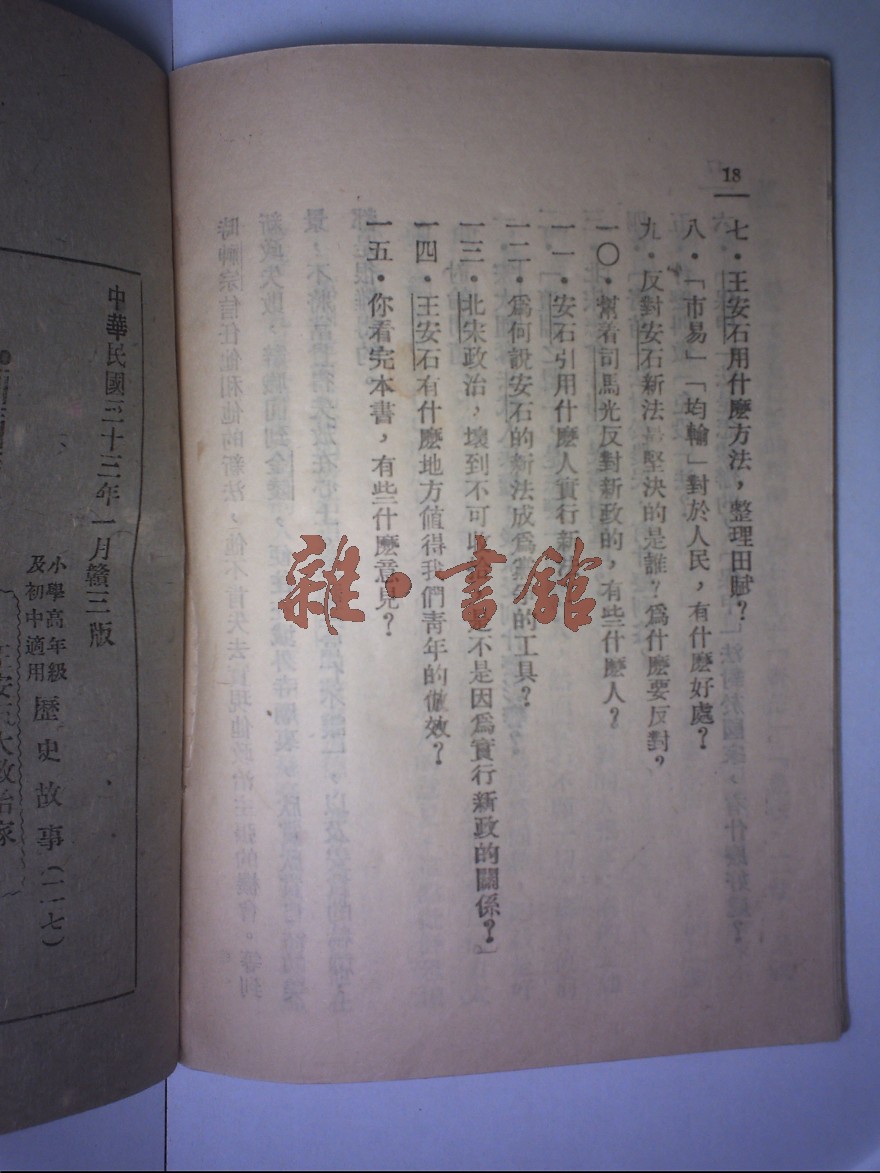 18
七．王安石用什麽方法，整理田賦？
八．「市易」「均輸」對於人民，有什麽好處？
九．反對安石新法最堅決的是誰？爲什麽要反對？
一〇．幫着司馬光反對新政的，有些什麽人？
一一．安石引用什麽人實行新法
一二．爲何說安石的新法成爲黨爭的工具？
一三．北宋政治，壞到不可收拾是不是因爲實行新政的關係？」
一四．王安石有什麽地方值得我們靑年的倣效？
一五．你看完本書，有些什麽意見？
雜·書館
中華民國三十三年一月贛三版
小學高年級
及初中適用
歷史故事（一一七）
王安石大政治家